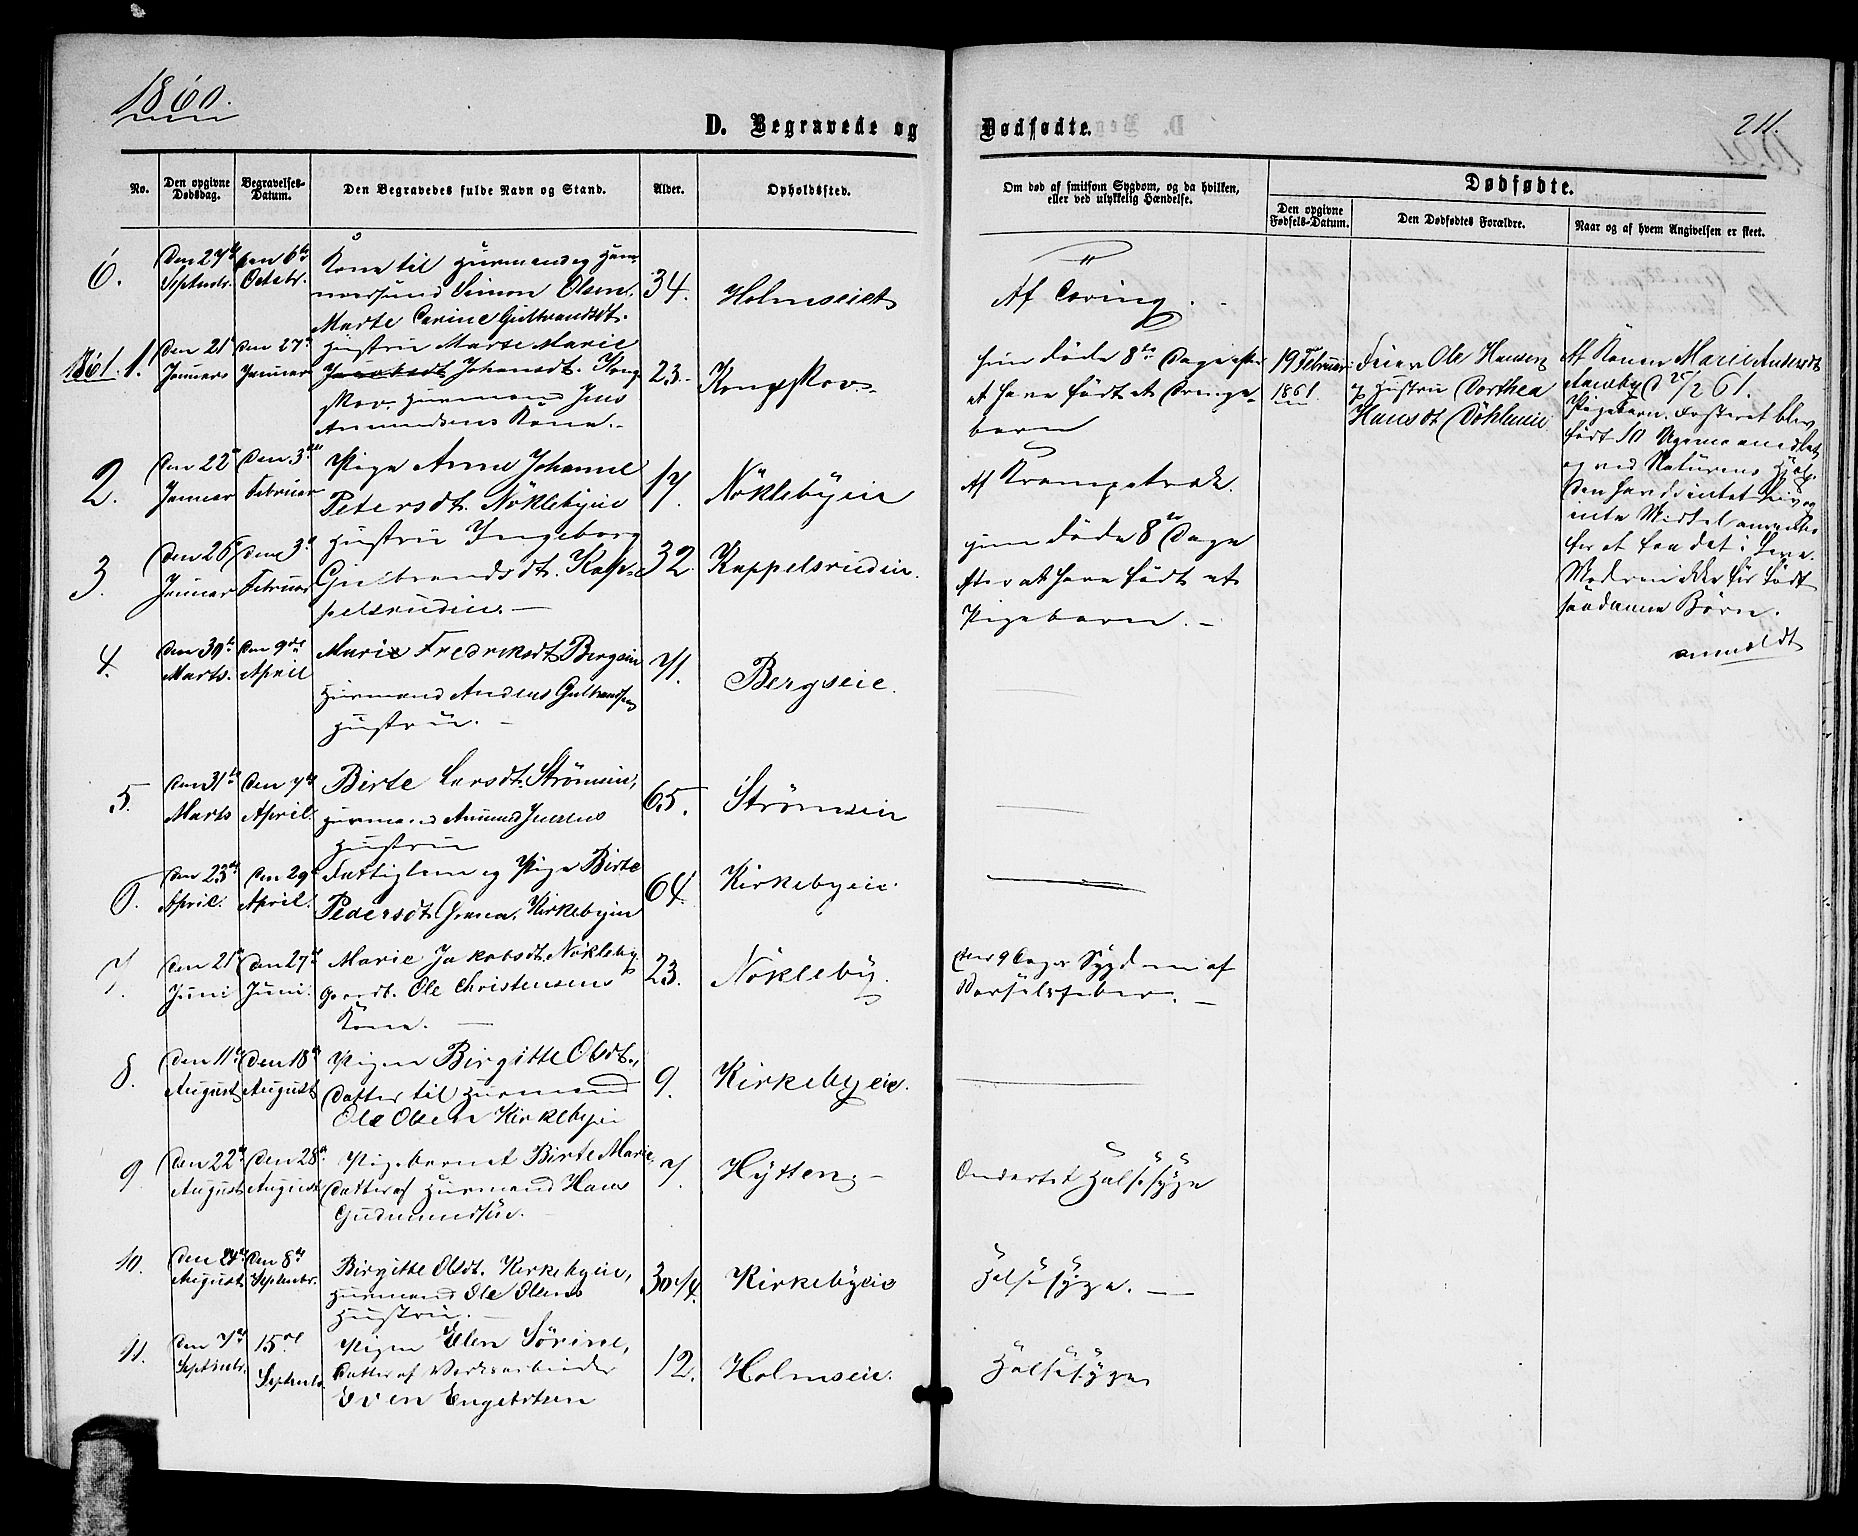 1860.
211.
D. Begravede og Dødfødte.
No.
Den opgivne Dødsdag.
Begravelses-Datum.
Den Begravedes fulde Navn og Stand.
Alder.
Opholdssted.
Om død af smitsom Sygdom, og da hvilken,
eller ved ulykkelig Hændelse.
Dødfødte.
Den opgivne Fødsels-Datum.
Den Dødfødtes Forældre.
Naar og af hvem Angivelsen er skeet.
6.
Den 27de Septembr.
Den 6te Octobr.
Kone til Huusmand og
Simon Olsen,
Marte Carine Gulbrandsdt.
34.
Holmseiet
Af Tæring.
1861. 1.
Den 21de Januar
Den 27de Januar
Hustru Marte Marie
Jacobsdt Johansdt. Kong-
skov. Huusmand Jens
Amundsens Kone.
23.
Kongskov.
Hun døde 8te Dagen efter
at have født et Drenge-
barn
19 Februar 1861.
Ole Hansen
og Hustru Dorthea
Hansdt Døhleneie
Af Konen Marie Andersdt
25/2 61.
Pigebarn. Fosteret blev
født 10 Uger
og ved Naturens Hjelp.
Den havde intet Liv og
inte Middel anvendtes
for at faa det i Live.
Moderen ikke før født
saadanne Børn.
anmeldt
2.
Den 22de Januar
Den 3die Februar
Pige Anne Johanne
Petersdt. Nöklebyeie
17.
Nöklebyeie
Af Krampetræk.
3.
Den 26de Januar
Den 3die Februar
Hustru Ingeborg
Gulbrandsdt. Kap-
pelsrudeie.
32.
Kappelsrudeie.
Hun døde 8te Dage
efter at have født et
Pigebarn.
4.
Den 30te Marts.
Den 9de April
Marie Fredriksdt Bergseie
Huusmand Andreas Gulbrandsens
Hustru.
71.
Bergseie.
5.
Den 31te Marts
Den 7de April.
Birte Larsdt. Strömseie,
Huusmand Amund Juelsens
Hustru
65.
Strömseie
6.
Den 23de April.
Den 29de April.
Fattiglem og Pige Birte
Pedersdt. Kirkebyeie
64.
Kirkebyeie.
7.
Den 21de Juni
Den 27de Juni.
Marie Jakobsdt. Nökleby,
Gaardb. Ole Christensens
Kone.
23.
Nökleby.
efter 9 Dages Sygdom af
Barselsfeber.
8.
Den 11te August
Den 18de August
Pigen Birgitte Olsdt.,
Datter til Huusmand
Ole Olsen Kirkebyeie
9.
Kirkebyeie.
9.
Den 22de August
Den 28de August
Pigebarnet Birte Marie
Datter af Huusmand Hans
Gudmundsen.
7.
Hytten
Ondartet Halssyge
10.
Den 24de August.
Den 8de Septembr.
Birgitte Olsdt. Kirkebyeie,
Huusmand Ole Olsens
Hustru.
30 1/4.
Kirkebyeie
Halssyge.
11.
Den 7de Septembr.
15de Septembr.
Pigen Elen Sörine,
Datter af Verksarbeider
Even Engebrtsen
12.
Holmseie.
Halssyge